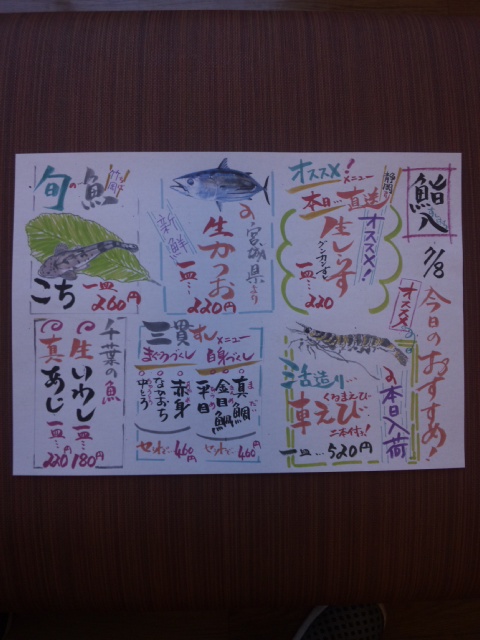 鮨八
7/8
今日のおすすめ!
オススメ!メニュー
静岡
本日直送
オススメ!
生しらす
グンカンずし
一皿… 220
オススメ
の本日入荷
活造り…
くるまえび
車えび…
二本付き!
一皿…520円
の宮城県より
新鮮
生かつお
一皿…
220円
三貫すしメニュー
まぐろづくし
赤身
なかおち
中とろ
セットで 460円
白身づくし
真鯛
金目鯛
平目
セットで 460円
旬の魚
竹岡
こち
一皿 260円
千葉の魚
生いわし
一皿…
180円
真あじ
一皿…
220円